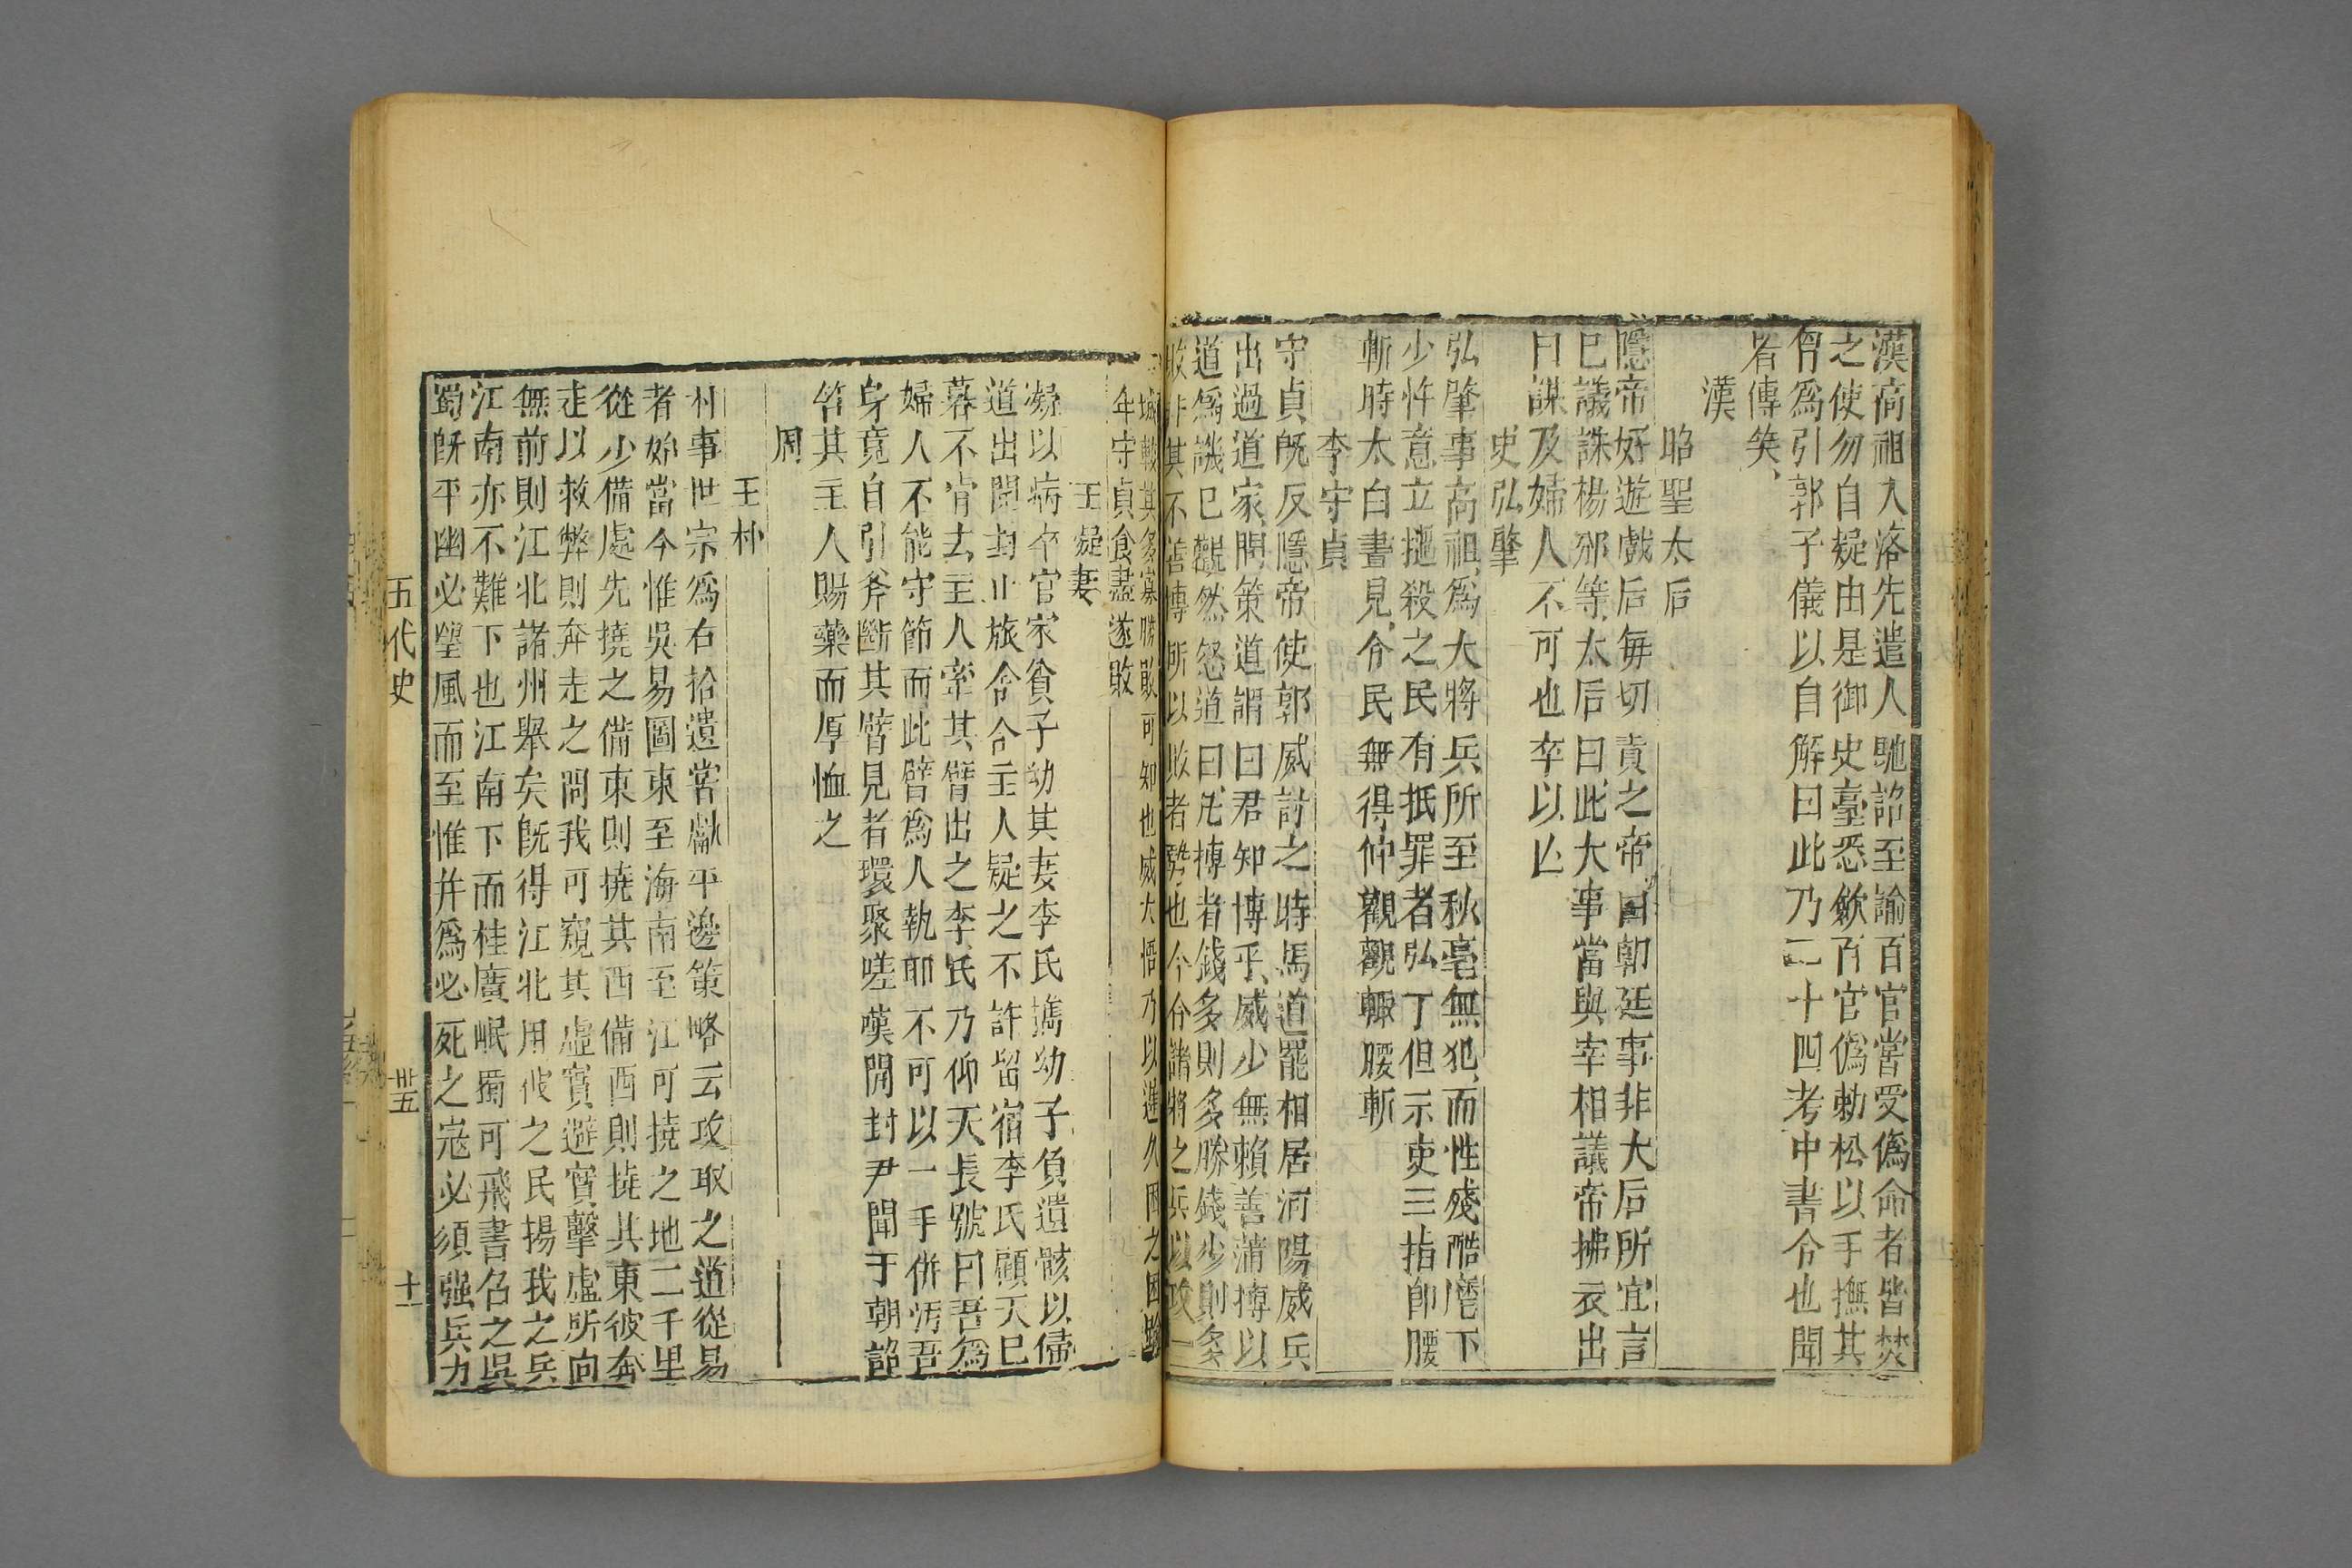 漢高祖入洛先遣人馳詔至諭百官嘗受僞命者皆焚
之使勿自疑由是御史臺悉歛百官僞勅松以手撫其
胷爲引郭子儀以自解曰此乃二十四考中書令也聞
者傳笑
漢
昭聖太后
隱帝好遊戲后每切責之帝曰朝廷事非大后所宜言
已議誅楊邠等太后曰此大事當與宰相議帝拂衣出
曰謀及婦人不可也卒以亡
史弘肇
弘肇事高祖爲大將兵所至秋毫無犯而性殘酷麾下
少忤意立撾殺之民有抵罪者弘丁但示吏三指卽腰
斬時太白晝見令民無得仰觀觀輙腰斬
李守貞
守貞旣反隱帝使郭威討之時馮道罷相居河陽威兵
出過道家問策道謂曰君知博乎威少無賴善蒲博以
道爲譏巳艴然怒道曰凡博者錢多則多勝錢少則多
敗非其不善博所以敗者勢也今合諸將之兵以攻一
城較其多寡勝敗可知也威大悟乃以遲久困之困踰
年守貞食盡遂敗
王凝妻
凝以病卒官家貧子幼其妻李氏攜幼子負遺骸以歸
道出開封止旅舍舍主人疑之不許留宿李氏顧天巳
暮不肯去主人牽其臂出之李氏乃仰天長號曰吾爲
婦人不能守節而此臂爲人執耶不可以一手併汚吾
身竟自引斧斷其臂見者環聚嗟嘆開封尹聞于朝詔
笞其主人賜藥而厚恤之
周
王朴
朴事世宗爲右拾遺嘗獻平邊策略云攻取之道從易
者始當今惟吳易圖東至海南至江可撓之地二千里
從少備處先撓之備東則撓其西備西則撓其東彼奔
走以救弊則奔走之間我可窺其虛實避實擊虛所向
無前則江北諸州舉矣旣得江北用彼之民揚我之兵
江南亦不難下也江南下而桂廣岷蜀可飛書召之吳
蜀旣平幽必望風而至惟并爲必死之寇必須强兵力
五代史 卅五 十一